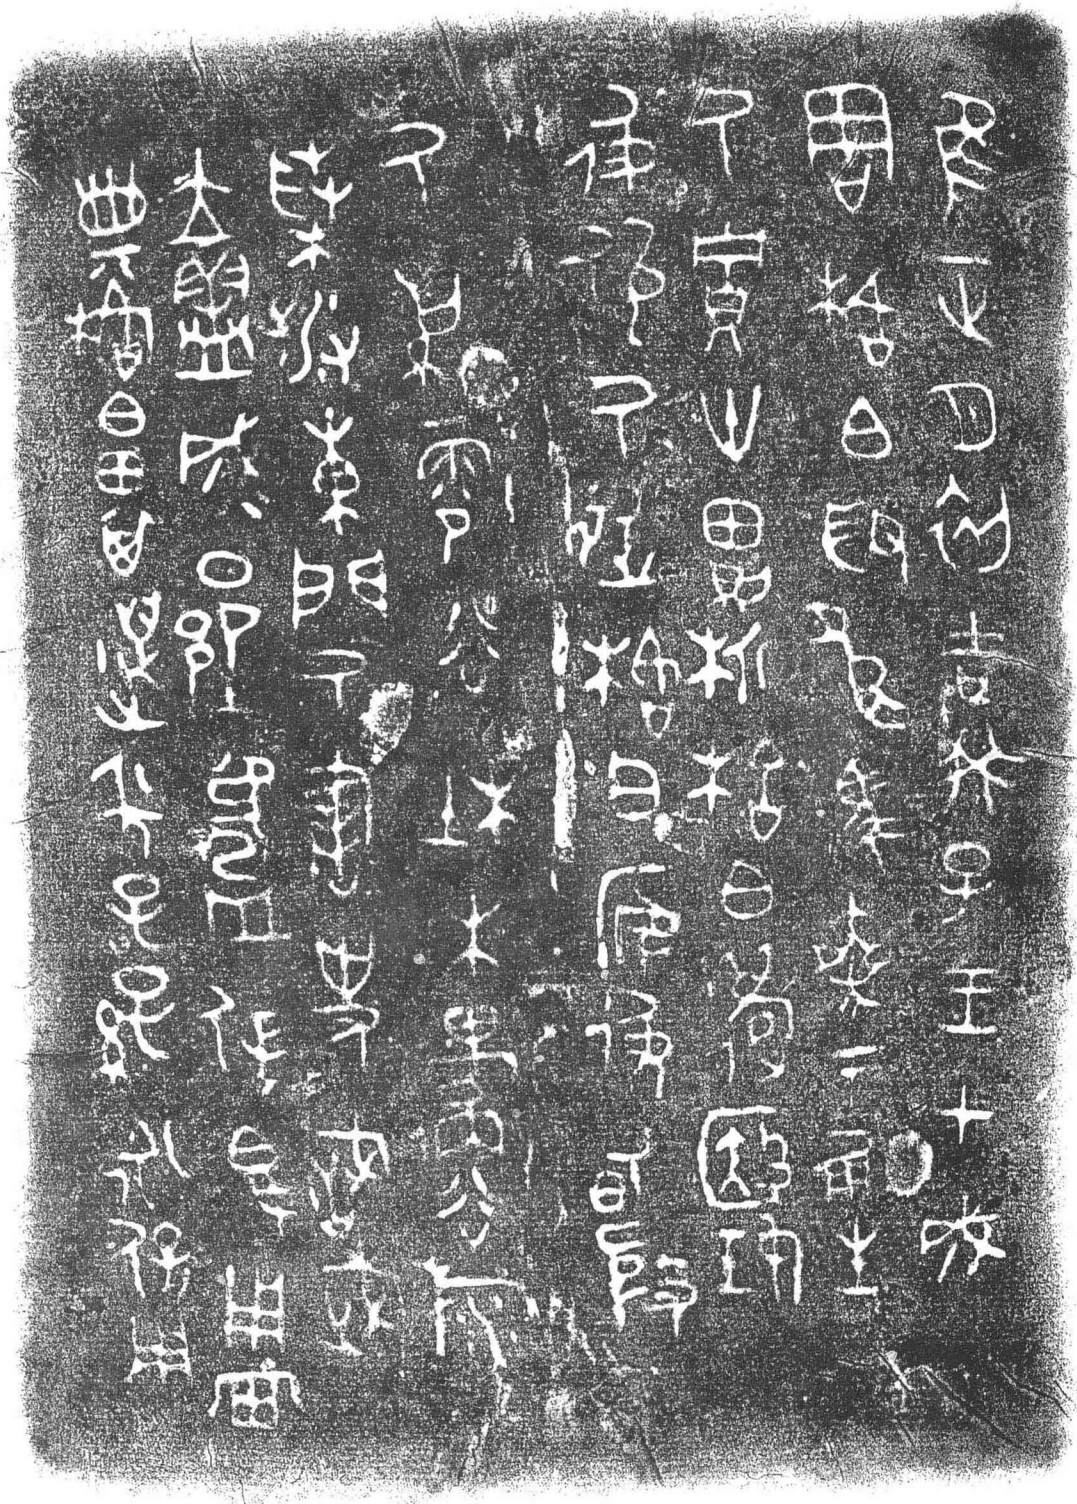 隹正月初吉癸巳王才成
周格白取良馬乘于倗生
厥貯卅田則析格白殹妊
彶佤厥從格白安彶甸殷
厥雩谷杜木谷旅
桑涉東門厥書史戠武
立盟成鑄保簋用
典格白田其邁年子孫永保用